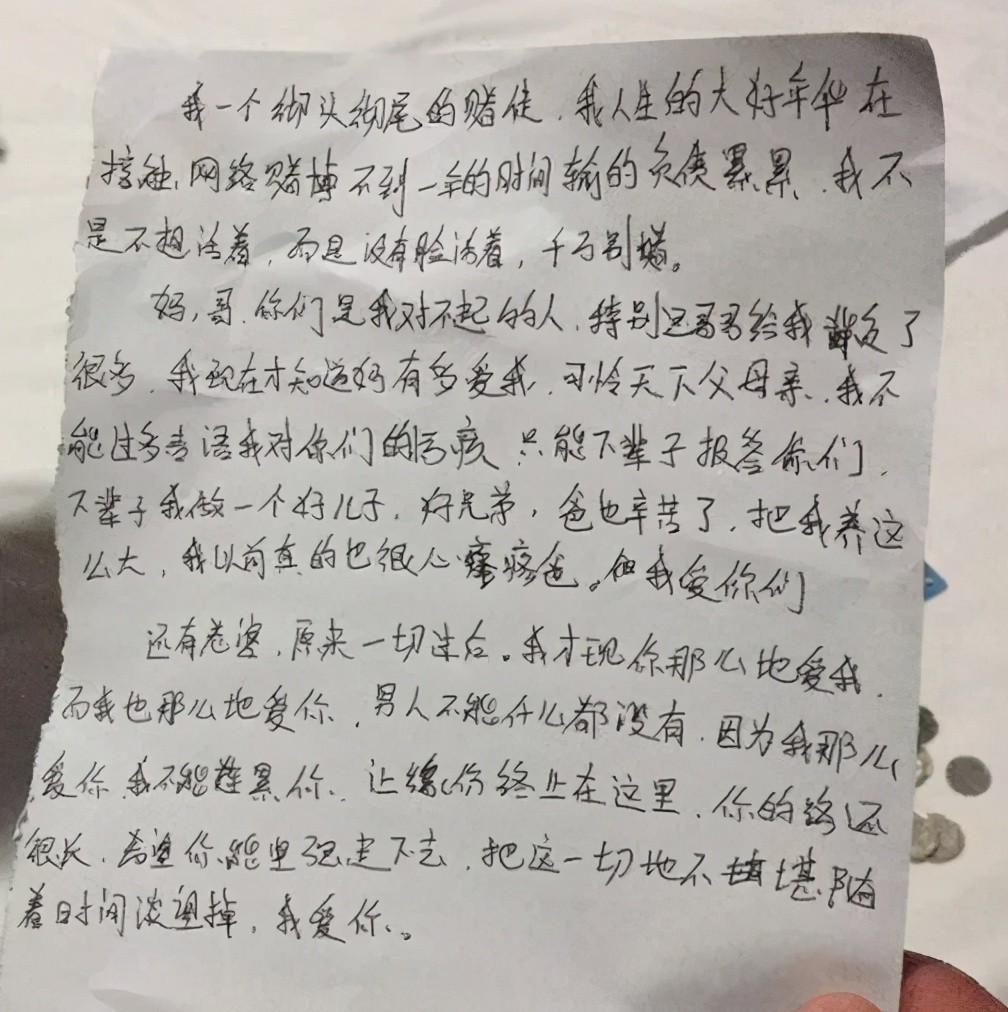 我一个彻头彻尾的赌徒，我人生的大好年华在
接触网络赌博不到一年的时间输的负债累累，我不
是不想活着，而是没有脸活着，千万别赌。
妈，哥，你们是我对不起的人，特别是哥哥给我 了
很多，我现在才知道妈有多爱我，可怜天下父母亲，我不
能过多言语我对你们的亏疚 只能下辈子报答你们，
下辈子我做一个好儿子，好兄弟，爸也辛苦了，把我养这
么大，我以前真的也很心疼爸。但我爱你们
还有老婆，原来一切过后。我才现你那么地爱我，
而我也那么地爱你，男人不能什么都没有，因为我那么
爱你 我不能连累你，让缘份终止在这里，你的路还
很长，希望你能坚强走下去，把这一切地不堪随
着时间淡忘掉，我爱你。